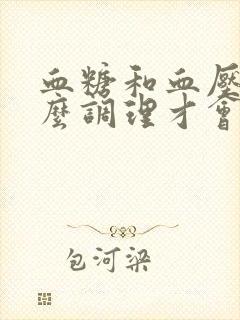 血糖和血壓
麼調理才會
包河梁